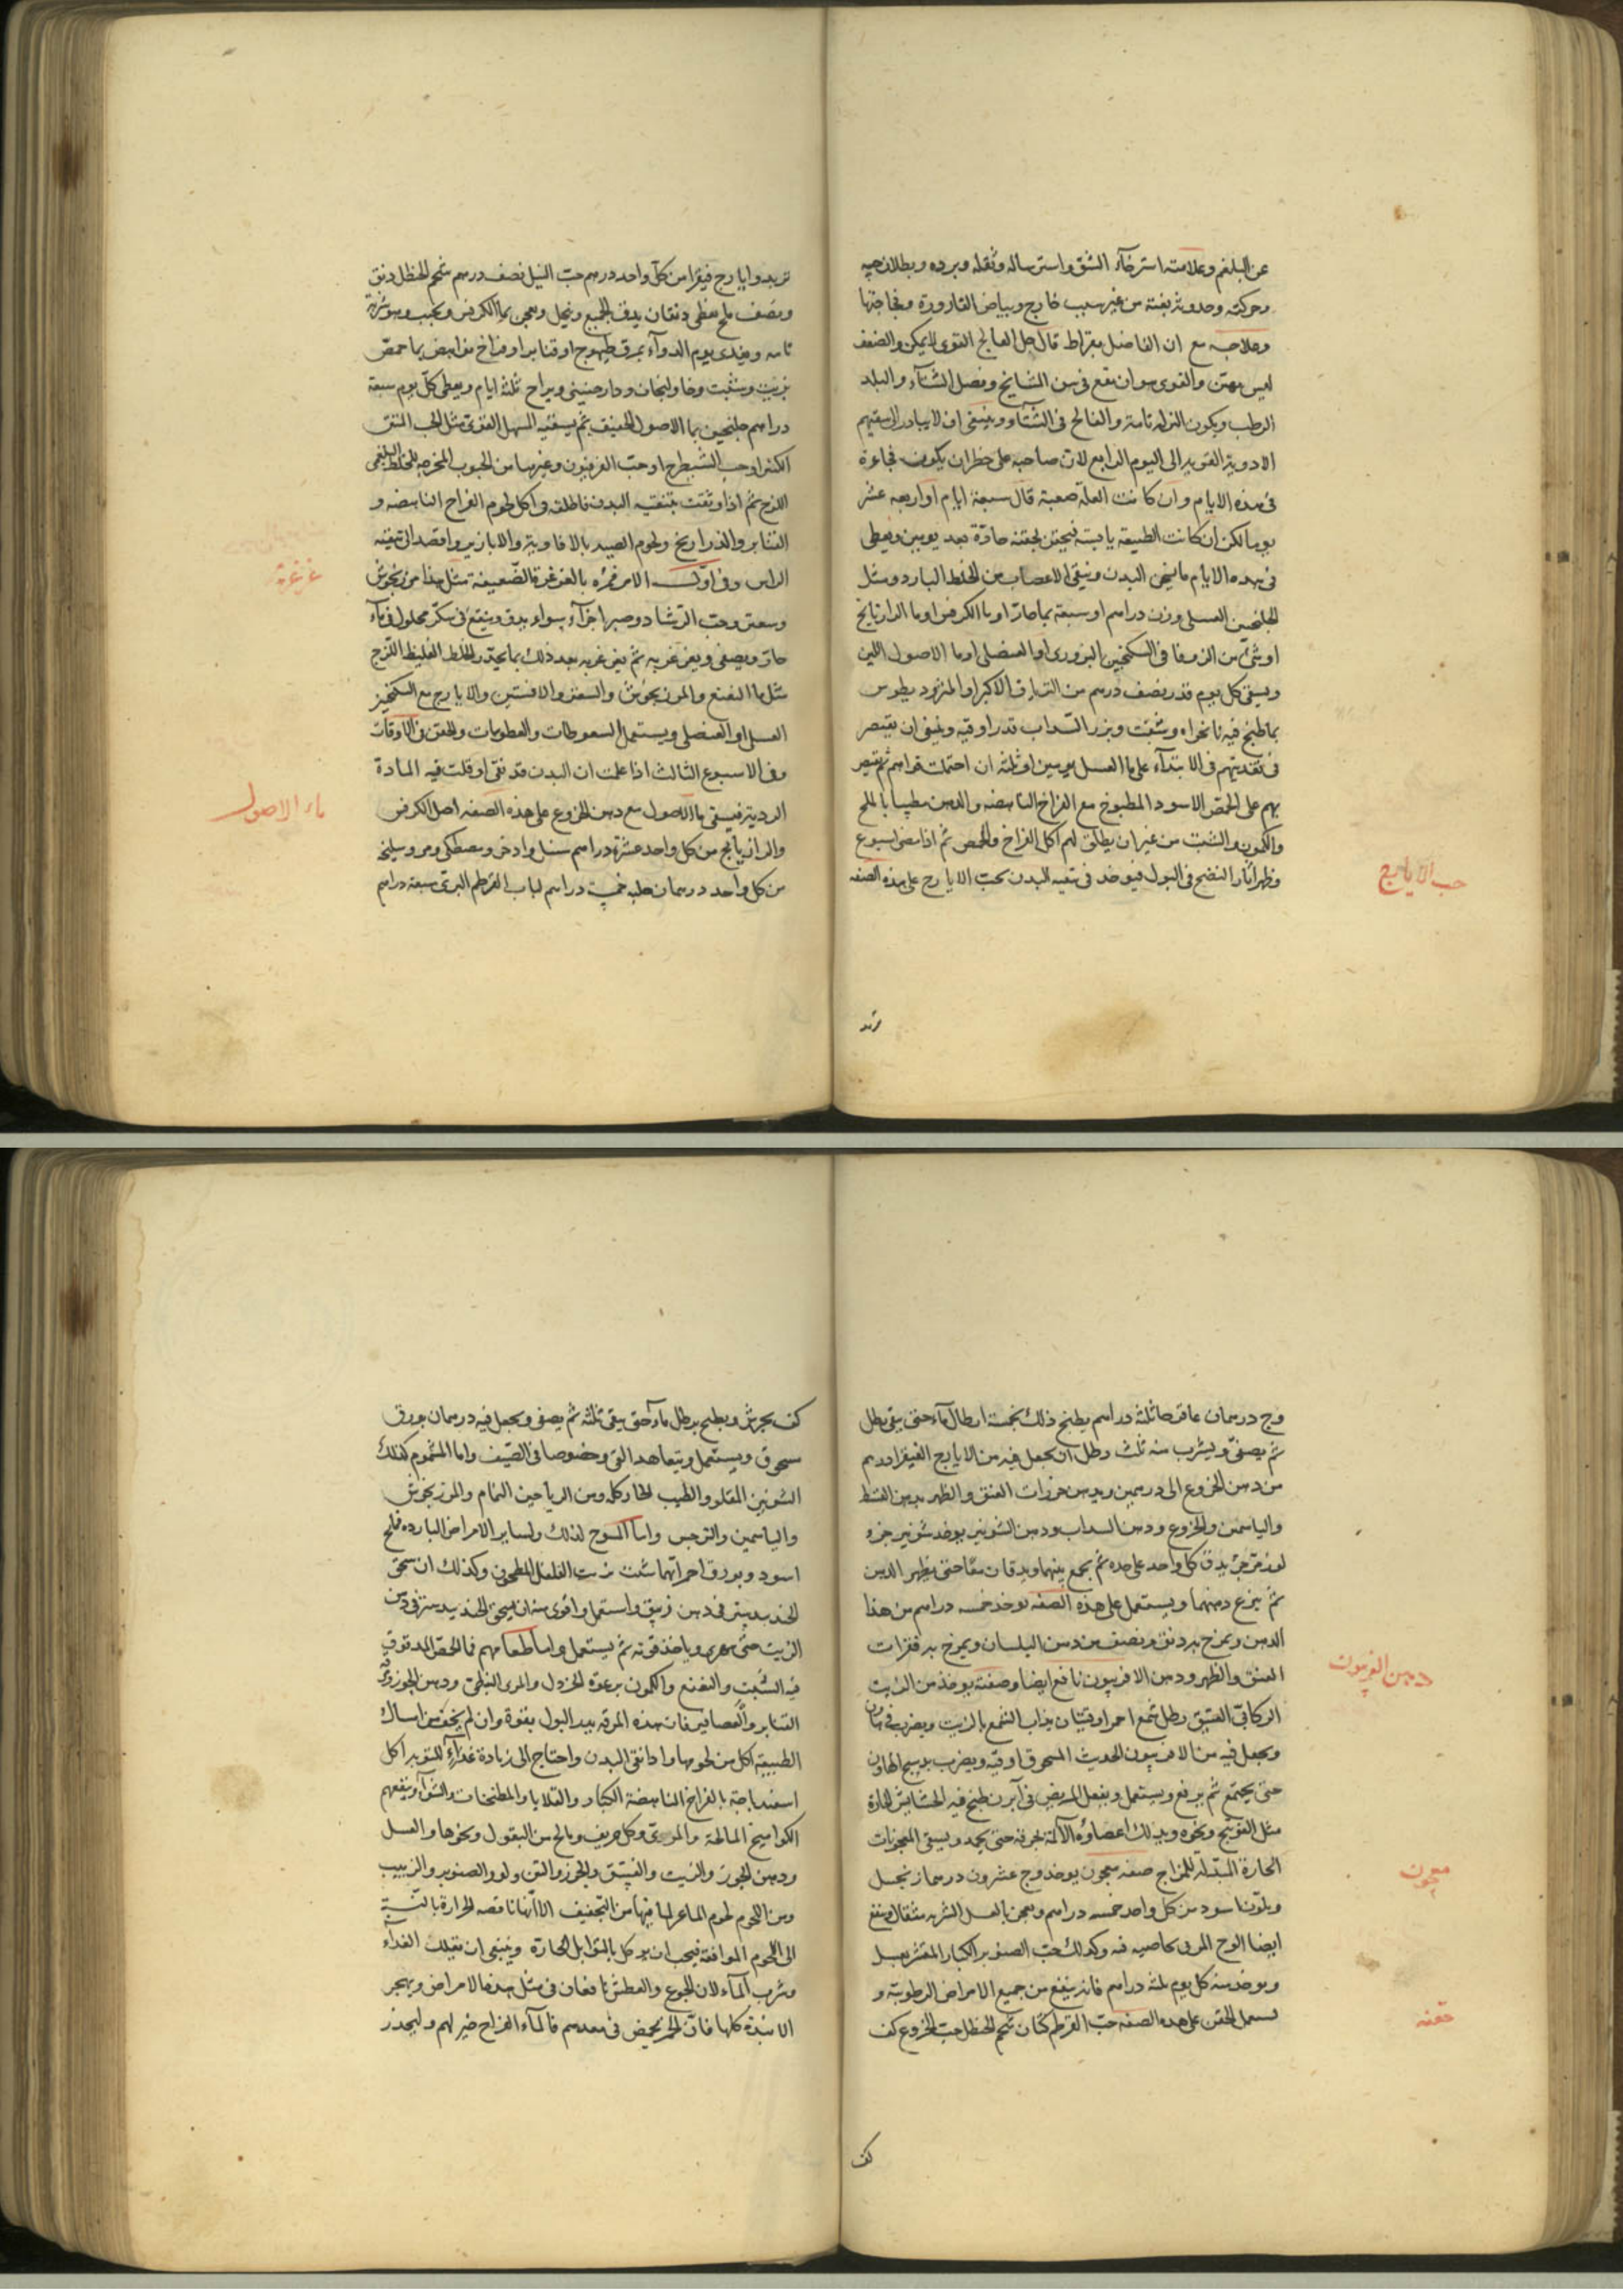 عن البلغم وعلامته استرخاء الشق واسترساله وثقله وبرده وبطلان حسه
وحركته وحدوثه بغتة من غير سبب خارج وبياض القارورة وفجاجتها
وعلاجه مع ان الفاضل بقراط قال حل الفالج القوى لا يمكن والضعيف
ليس بهين والقوى هو ان يقع فى سن المشايخ وفصل الشتاء والبلد
الرطب ويكون النزلة تامة والفالج فى الشتاء وينبغى ان لا يبادر الى سقيهم
الادوية القوية الى اليوم الرابع لان صاحبه على خطر ان يكون فجاءة
فى هذه الايام وان كانت العلة صعبة قال سبعة ايام او اربعة عشر
يوما لكن ان كانت الطبيعة يابسة فيحقن بحقنة حادة بعد يومين ويعطى
فى هذه الايام ما يسخن البدن وينقى الاعصاب من الخلط البارد ومثل
الجلنجبين العسلى وزن دراهم او سبعة بماء حار او ماء الكرفس او ماء الرازيانج
او شئ من الزوفا فى السكنجبين البزورى او العنصلى او ماء الاصول اللين
ويسقى كل يوم قدر نصف درهم من الترياق الاكبر او المثروديطوس
بما طبخ فيه نانخواه وشبت وبزر السداب قدر اوقية وينبغى ان يقتصر
فى تغذيتهم فى الابتداء على ماء العسل يومين او ثلثة ان احتملت قواهم ثم يقتصر
بهم على الحمص الاسود المطبوخ مع الفراخ الناهضة والدهن مطيبا بالملح
والكمون والشبت من غير ان يطلق لهم اكل الفراخ والحمص ثم اذا مضى اسبوع
وظهر اثار النضج فى البول فيؤخذ فى تنقية البدن بحب الايارج على هذه الصفة
حب الايارج
تربد وايارج فيقرا من كل واحد درهم حب النيل نصف درهم شحم الحنظل دنق
ونصف ملح نفطى دنقان يدق الجميع وينخل ويعجن بماء الكرفس ويحبب وهو شربة
تامة ويغذى يوم الدواء بمرق طيهوج او قنابر او فراخ مع ابيض بماء حمص
بزيت وشبت وخاولنجان ودارصينى ويراح ثلثة ايام ويعطى كل يوم سبعة
دراهم جلنجبين بماء الاصول الخفيف ثم يسقيه المسهل القوى مثل الحب المنتن
الكبير او حب الشيطرج او حب الفربيون وغيرها من الحبوب المخرجة للخلط البلغمى
اللزج ثم اذا وثقت بتنقية البدن فاطلقه فى اكل لحوم الفراخ الناهضة و
القنابر والدراريج ولحوم الصيد بالافاوية والابازير واقصد الى تنقية
الراس وفى اول الامر فمره بالغرغرة الضعيفة مثل هذا مرزنجوش
وسعتر وحب الرشاد وصبر اجزاء سواء يدق وينقع فى سكر محلول فى ماء
حار ويصفى ويغرغر به ثم يغرغر به بعد ذلك بما يحدر الخلط الغليظ اللزج
مثل ماء النعنع والمرزنجوش والسعتر والافسنتين والايارج مع السكنجبين
العسلى او العنصلى ويستعمل السعوطات والعطوسات والحقن فى الاوقات
وفى الاسبوع الثالث اذا علمت ان البدن قد نقى او قلت فيه المادة
الردية فيسقى ماء الاصول مع دهن الخروع على هذه الصفة اصل الكرفس
والرازيانج من كل واحد عشرة دراهم سنبل واذخر ومصطكى ومر وسليخة
من كل واحد درهمان حلبة خمسة دراهم لباب القرطم البرى سبعة دراهم
غرغرة
ماء الاصول
وج درهمان عاقرقرحا ثلثة دراهم يطبخ ذلك بخمسة ارطال ماء حتى يبقى رطل
ثم يصفى ويشرب منه ثلث رطل ان يجعل فيه من الايارج الفيقرا درهم
من دهن الخروع الى درهمين ويدهن خرزات العنق والظهر بدهن القسط
والياسمين والخروع ودهن السداب ودهن الشونيز يؤخذ شونيز جزو
لوز مر جزء يدق كل واحد على حدة ثم يجمع بينهما ويدقان معا حتى يظهر الدهن
ثم ينزع دهنهما ويستعمل على هذه الصفة يوخذ خمسة دراهم من هذا
الدهن ويمزج بدرنق ونصف من دهن البلسان ويمرخ به فقرات
العنق والظهر ودهن الافربيون نافع ايضا وصفته يوخذ من الزيت
الركابى العتيق رطل شمع احمر اوقيتان يذاب الشمع بالزيت ويضرب فى هاون
ويجعل فيه من الافربيون الحديث المسحوق اوقية ويضرب بدستج الهاون
حتى يجتمع ثم يرفع ويستعمل ويفعل المريض فى ابزن طبخ فيه الحشايش الحارة
مثل الفوتنج ونحوه ويدلك اعضاؤه الآلمة بخرقة حتى يحمر ويسقى المعجونات
الحارة المبدلة للمزاج صفة معجون يوخذ وج عشرون درهما زنجبيل
وشونيز اسود من كل واحد خمسة دراهم ويعجن بالعسل الشربة مثقال وينفع
ايضا الوج المربى بخاصية فيه وكذلك حب الصنوبر الكبار المقشر بعسل
ويوخذ منه كل يوم ثلثة دراهم فانه ينفع من جميع الامراض الرطوبية و
يستعمل الحقن على هذه الصفة حب القرطم كفان شحم الحنظل حب الخروع كف
دهن الفربيون
معجون
حقنة
كف
كف يجرش ويطبخ برطل ماء حتى يبقى ثلثه ثم يصفى ويجعل فيه درهمان بورق
مسحوق ويستعمل ويتعاهد القئ وخصوصا فى الصيف واما المشموم فكذلك
الشونيز المقلو والطيب الحار كله ومن الرياحين النمام والمرزنجوش
والياسمين والنرجس واما المسوح لذلك ولساير الامراض الباردة فملح
اسود وبورق احمر ايهما شئت بزيت الفلفل المطحون وكذلك ان سحق
الجندبيدستر فى دهن زنبق واستعمل واقوى منه ان يسحق الجندبيدستر فى دهن
الزيت حتى يتهرى وياخذ قوته ثم يستعمل واما طعامهم فماء الحمص المدقوق
فيه الشبت والنعنع والكمون برغوة الخردل والمرى النبطى ودهن الجوز ومرقة
القنابر والعصافير فان هذه المرقة يدر البول بقوة وان لم يخف من امساك
الطبيعة اكل من لحومها واذا نقى البدن واحتاج الى زيادة غذاء للتقوية اكل
اسفيدباجة بالفراخ الناهضة الكبار والقلايا والمطجنات والشواء وينفعهم
الكواميخ المالحة والمرى وكل حريف ومالح من البقول ونحوها والعسل
ودهن الجوز والزيت والفستق والجوز والتين ولوز الصنوبر والزبيب
ومن اللحوم لحوم الماعز لما فيها من التجفيف الا انها ناقصة الحرارة بالنسبة
الى اللحوم الموافقة فيجب ان يوكل بالتوابل الحارة وينبغى ان يقلل الغذاء
وشرب الماء لان الجوع والعطش نافعان فى مثل هذه الامراض ويهجر
الانبذة كلها فان الخمر يحمض فى معدهم فالماء القراح خير لهم وليحذر